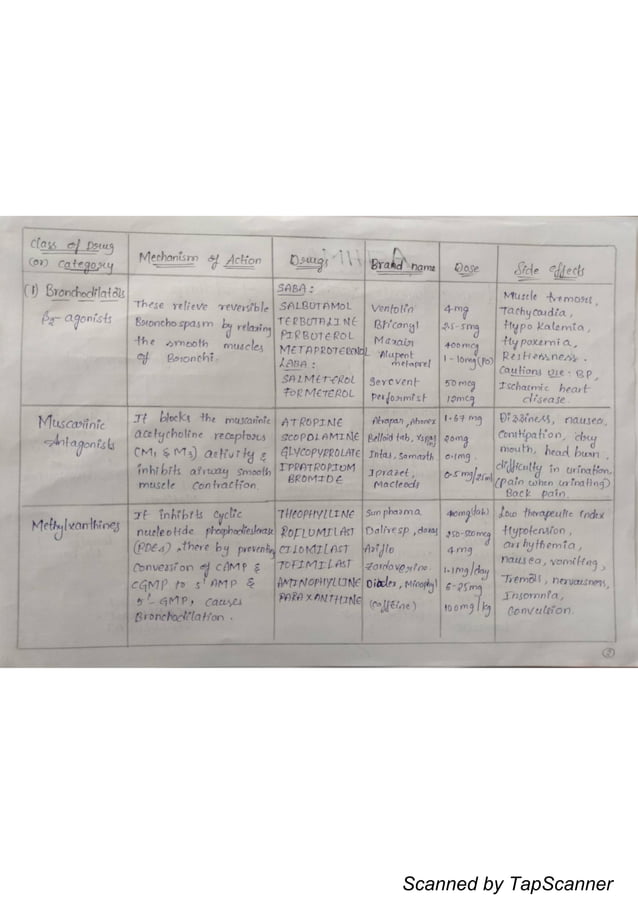 Class of Drug (or) Category
Mechanism of Action
Drugs
Brand name
Dose
Side effects
(1) Bronchodilators
β2- agonists
These relieve reversible
Bronchospasm by relaxing
the smooth muscles
of Bronchi.
SABA :
SALBUTAMOL
TERBUTALINE
PIRBUTEROL
METAPROTERENOL
LABA :
SALMETEROL
FORMETEROL
Ventolin
Bricanyl
Maxair
Alupent
metaprel
Serevent
Performist
4mg
2.5-5mg
400mcg
1-10mg (PO)
50mcg
12mcg
Muscle tremors,
Tachycardia,
Hypokalemia,
Hypoxemia,
Restlessness.
Cautions use : BP,
Ischaemic heart
disease.
Muscarinic
Antagonists
It blocks the muscarinic
acetycholine receptors
(M1 & M3) activity &
inhibits airway smooth
muscle contraction.
ATROPINE
SCOPOLAMINE
GLYCOPYRROLATE
IPRATROPIUM
BROMIDE
Atropan,
Belloid tab,
Intas, Samarth
Iprazet,
Macleods
1.67 mg
20mg
0.1mg.
0.5mg/2.5ml
Dizziness, nausea,
Constipation, dry
mouth, head burn,
difficulty in urination,
(pain when urinating)
Back pain.
Methylxanthines
It inhibits cyclic
nucleotide phosphodiesterase
(PDEs), there by preventing
Conversion of CAMP &
CGMP to 5' AMP &
5'- GMP, causes
Bronchodilation.
THEOPHYLLINE
ROFLUMILAST
CILOMILAST
TOFIMILAST
AMINOPHYLLINE
PARAXANTHINE
Sun pharma
Daliresp,
Ariflo
(caffeine)
400mg(tab)
250-500mcg
4mg
1.1mg/day
6-25mg
100mg/kg
Low therapeutic index
Hypotension,
arrhythemia,
nausea, vomiting,
Tremors, nervousness,
Insomnia,
Convulsion.
Scanned by TapScanner